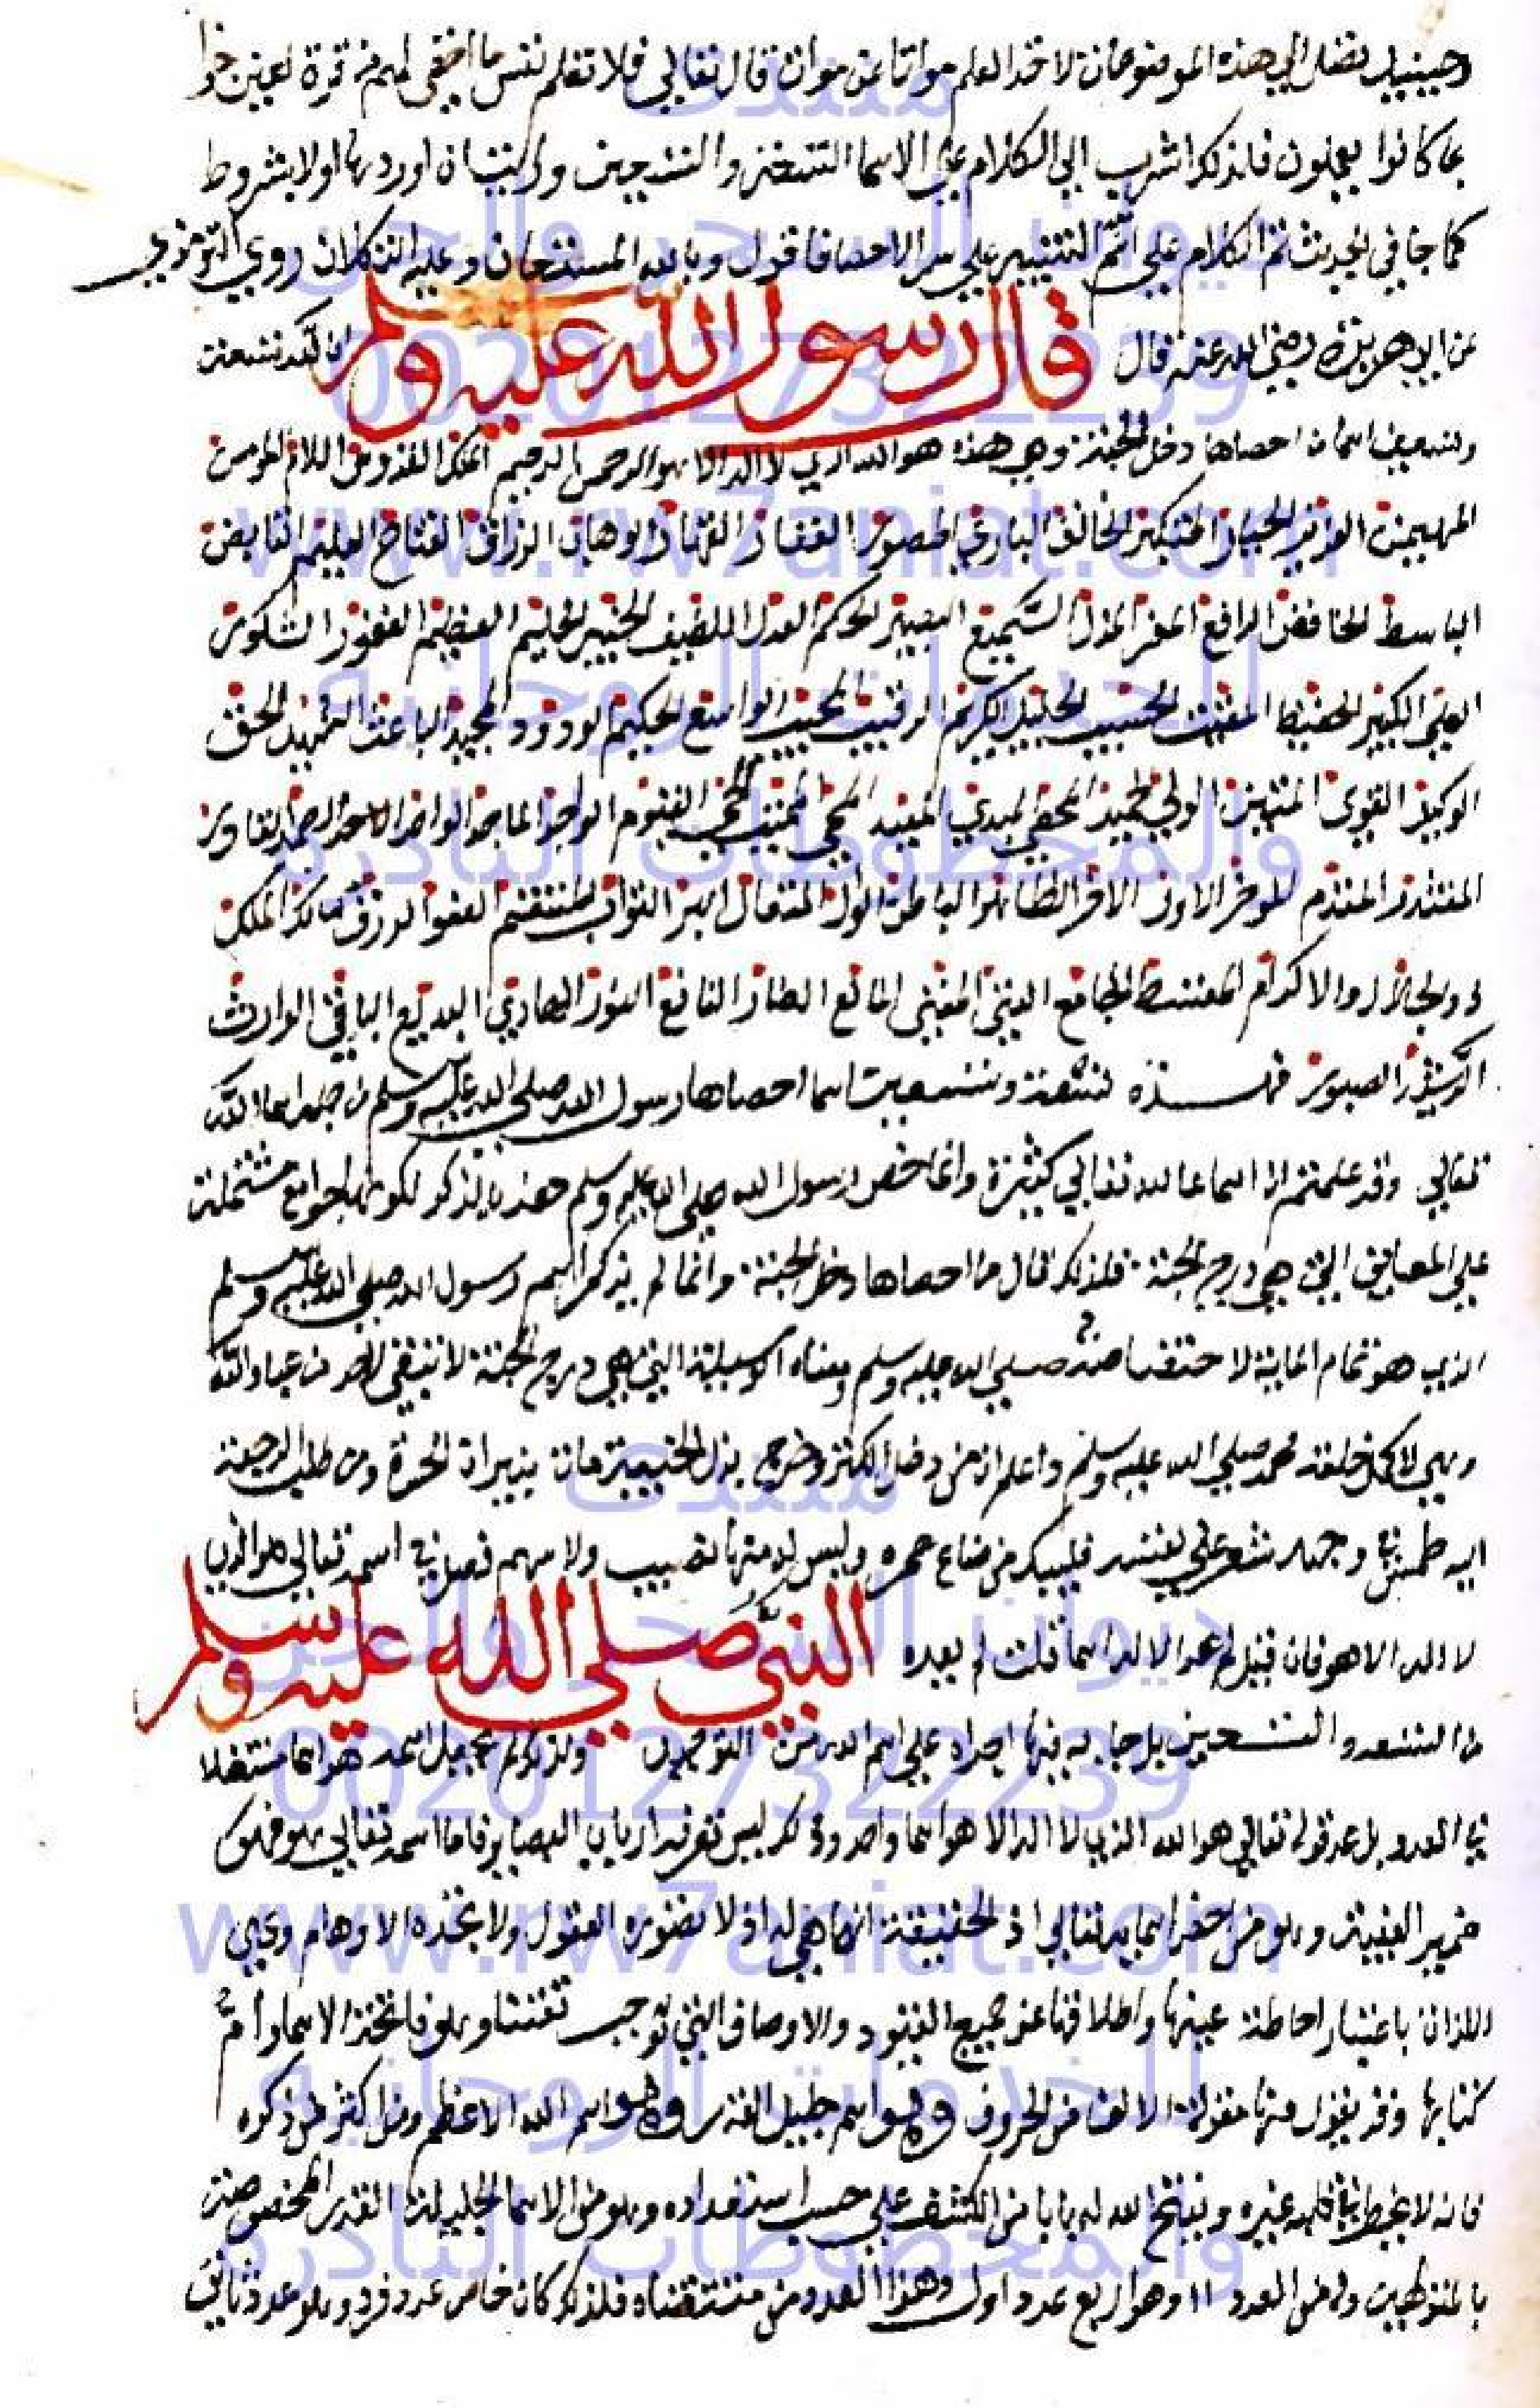 وحينئذ يصل الي هذه الموضوعات لاخذ العلم مواتا عن موات قال تعالي فلا تعلم نفس ما اخفي لهم من قرة اعين جزا
بما كانوا يعملون فلذلك اشرت الي الكلام علي الاسما التسعة والتسعين ورايت ان اوردها اولا بشروط
كما جا في الحديث ثم الكلام علي اتم التنبيه علي سر الاحصا فاقول وبالله المستعان وعليه التكلان روي الترمذي
عن ابي هريرة رضي الله عنه قال قال رسول الله عليه وسلم ان لله تسعة
وتسعين اسما من احصاها دخل الجنة وهي هذه هو الله الذي لا اله الا هو الرحمن الرحيم الملك القدوس السلام المومن
المهيمن العزيز الجبار المتكبر الخالق الباري المصور الغفار القهار الوهاب الرزاق الفتاح العليم القابض
الباسط الخافض الرافع المعز المذل السميع البصير الحكم العدل اللطيف الخبير الحليم العظيم الغفور الشكور
العلي الكبير الحفيظ المقيت الحسيب الجليل الكريم الرقيب المجيب الواسع الحكيم الودود المجيد الباعث الشهيد الحق
الوكيل القوي المتين الولي الحميد المحصي المبدي المعيد المحي المميت الحي القيوم الواجد الماجد الواحد الاحد الصمد القادر
المقتدر المقدم الموخر الاول الاخر الظاهر الباطن الوال المتعال البر التواب المنتقم العفو الروف مالك الملك
ذو الجلال والاكرام المقسط الجامع الغني المغني المانع الضار النافع النور الهادي البديع الباقي الوارث
الرشيد الصبور فهذه تسعة وتسعين اسما احصاها رسول الله صلي الله عليه وسلم من جملة اسما الله
تعالي وقد علمتم ان اسما الله تعالي كثيرة وانما خص رسول الله صلي الله عليه وسلم هذه بالذكر لكونها جوامع مشتملة
علي المعاني التي هي درج الجنة فلذلك قال من احصاها دخل الجنة وانما لم يذكر اسم رسول الله صلي الله عليه وسلم
الذي هو تمام الماية لاختصاصه صلي الله عليه وسلم بمعناه الوسيلة التي هي درج الجنة لا تنبغي لاحد من عباد الله
وهي لاكمل خلقه محمد صلي الله عليه وسلم واعلم ان من دخل الكنز وخرج بذل الخيبة مات بنيران الحسرة ومن طلب الرجعة
اليه طمس وجهه شعر علي نفسه فليبك من ضاع عمره وليس له منها نصيب ولا سهم فصل في اسمه تعالي هو الذي
لا اله الا هو فان قيل لم عد الا له اسما قلت لم يعده النبي صلي الله عليه وسلم
من التسعة والتسعين بل جا به فيها اجراء علي اسم الله من التوحيد ولذلك لم يجعل اسمه هو اسما مستقلا
في العدد بل عد قوله تعالي هو الله الذي لا اله الا هو اسما واحد وذلك ليس تعرفه ارباب البصاير فاما اسمه تعالي هو فهو
ضمير الغيبة وهو من اخص اسمايه تعالي اذ الحقيقة انما هي له اذ لا تصوره العقول ولا تحده الاوهام وهي
اللذات باعتبار احاطة عينها واطلاقها عن جميع القيود والاوصاف التي توجب تقييدا وهو فاتحة الاسما وام
كتابها وقد يقول منها منزلة الالف من الحروف وهو اسم جليل القدر وهو اسم الله الاعظم ومن اكثر من ذكره
فانه لا يخطر في قلبه غيره ويفتح الله له بابا من الكشف علي حسب استعداده وهو من الاسما الجليلة القدر المخصوصة
وله من العدد ١١ وهو اربع عدد اول وهذا العدد من فلذلك كان خاص عدد فرد وهو عدد ثاني
منتدى
ديوان السحر والجن
00201273222239
www.rw7aniat.com
للخدمات الروحانية
والمخطوطات النادرة
منتدى
ديوان السحر والجن
00201273222239
www.rw7aniat.com
للخدمات الروحانية
والمخطوطات النادرة